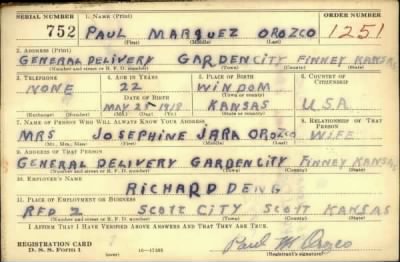 SERIAL NUMBER 1. NAME (Print) ORDER NUMBER
752 PAUL MARQUEZ OROZCO 1251
(First) (Middle) (Last)
2. ADDRESS (Print)
GENERAL DELIVERY GARDENCITY FINNEY KANSAS
(Number and street or R. F. D. number) (Town) (County) (State)
3. TELEPHONE 4. AGE IN YEARS 5. PLACE OF BIRTH 6. COUNTRY OF CITIZENSHIP
NONE 22 WINDOM
DATE OF BIRTH (Town or county)
MAY 1918 KANSAS U.S.A.
(Exchange) (Number) (Mo.) (Day) (Yr.) (State or country)
7. NAME OF PERSON WHO WILL ALWAYS KNOW YOUR ADDRESS 8. RELATIONSHIP OF THAT PERSON
MRS JOSEPHINE JARA OROZCO WIFE
(Mr., Mrs., Miss) (First) (Middle) (Last)
9. ADDRESS OF THAT PERSON
GENERAL DELIVERY GARDENCITY FINNEY KANSAS
(Number and street or R. F. D. number) (Town) (County) (State)
10. EMPLOYER'S NAME
RICHARD DENG
11. PLACE OF EMPLOYMENT OR BUSINESS
RFD 2 SCOTT CITY SCOTT KANSAS
(Number and street or R. F. D. number) (Town) (County) (State)
I AFFIRM THAT I HAVE VERIFIED ABOVE ANSWERS AND THAT THEY ARE TRUE.
REGISTRATION CARD
D. S. S. Form 1 Paul M. Orozco
(Registrant's signature)